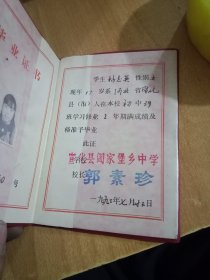 毕业证书
学生 杨志英 性别 女
现年 17 岁系 河北 省 宣化
县(市)人在本校 初中 班
班学习修业 三 年期满成绩及
格准予毕业
此证
宣化县阎家堡乡中学
校长 郭素珍
一九九〇年七月 日
号